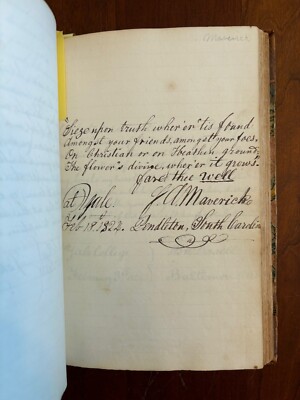 Maverick
"Sieze upon truth wher'er 'tis found
Amongst your friends, amongst your foes,
On Christian or on Heathen ground;
The flower's divine, wher'er it grows."
fare thee well
at Yale. S A Maverick
Feb 18. 1824. Pendleton, South Carolina